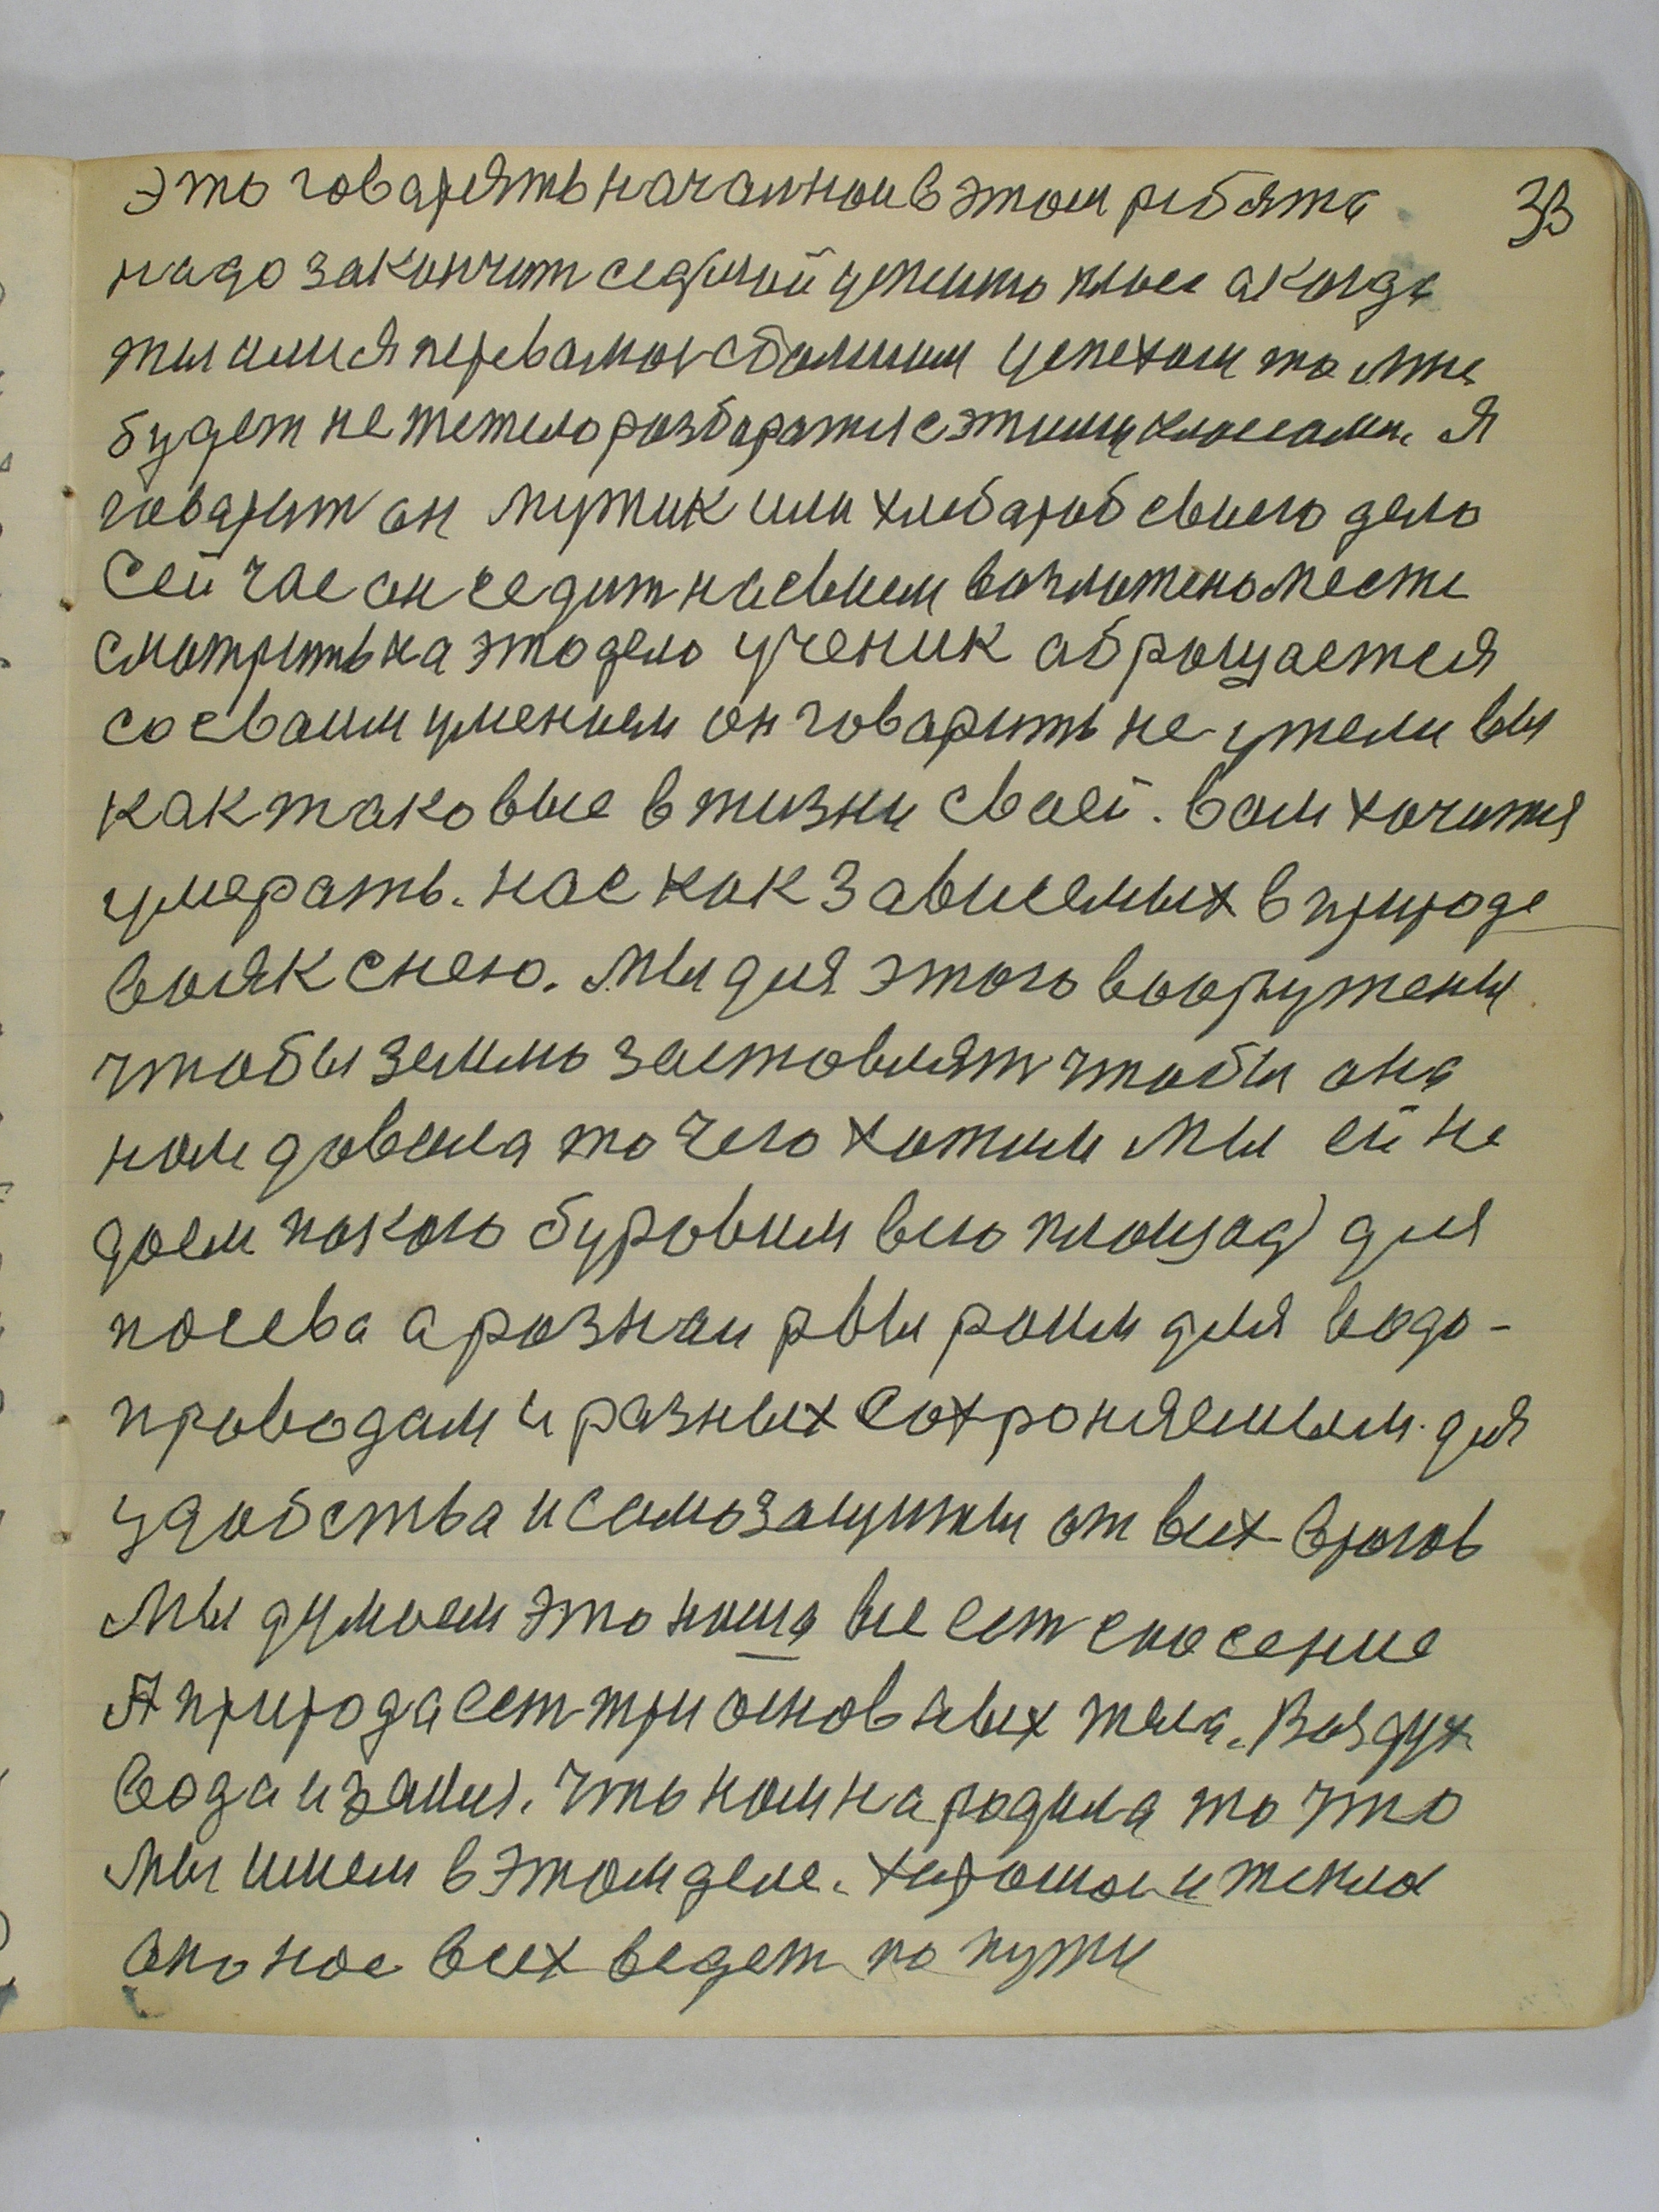 это говарять начании в этом ребята 33
надо закончит седмой ужеито клас а когда
ты или я перевамог сбалшим успехом то мне
будет не тежело разбаратся с этими класами. Я
говарит он мужик или хлебароб своего дело
Сейчас он седит на своем возложено месте
сматрить на это дело ученик абращается
со сваим умением он говарить не ужели вы
как таковые в жизни сваей. вам хочится
умерать. нас как зависемых в природе
вояк с нею. мы для этого вооружены
чтобы землю заставлят чтобы она
нам давала то чего хотим мы ей не
даем покою буровим всю площад для
посева а разнаи рвы роим для водо-
проводам и разных сохроняемым для
удобства и самозащиты от всех врагов
мы думаем это наша все ест спасение
А природа ест три основных тела. Воздух
вода и земля. что нам народила то что
мы имеем в этом деле. харошаи и тепла
оно нас всех ведет по пути